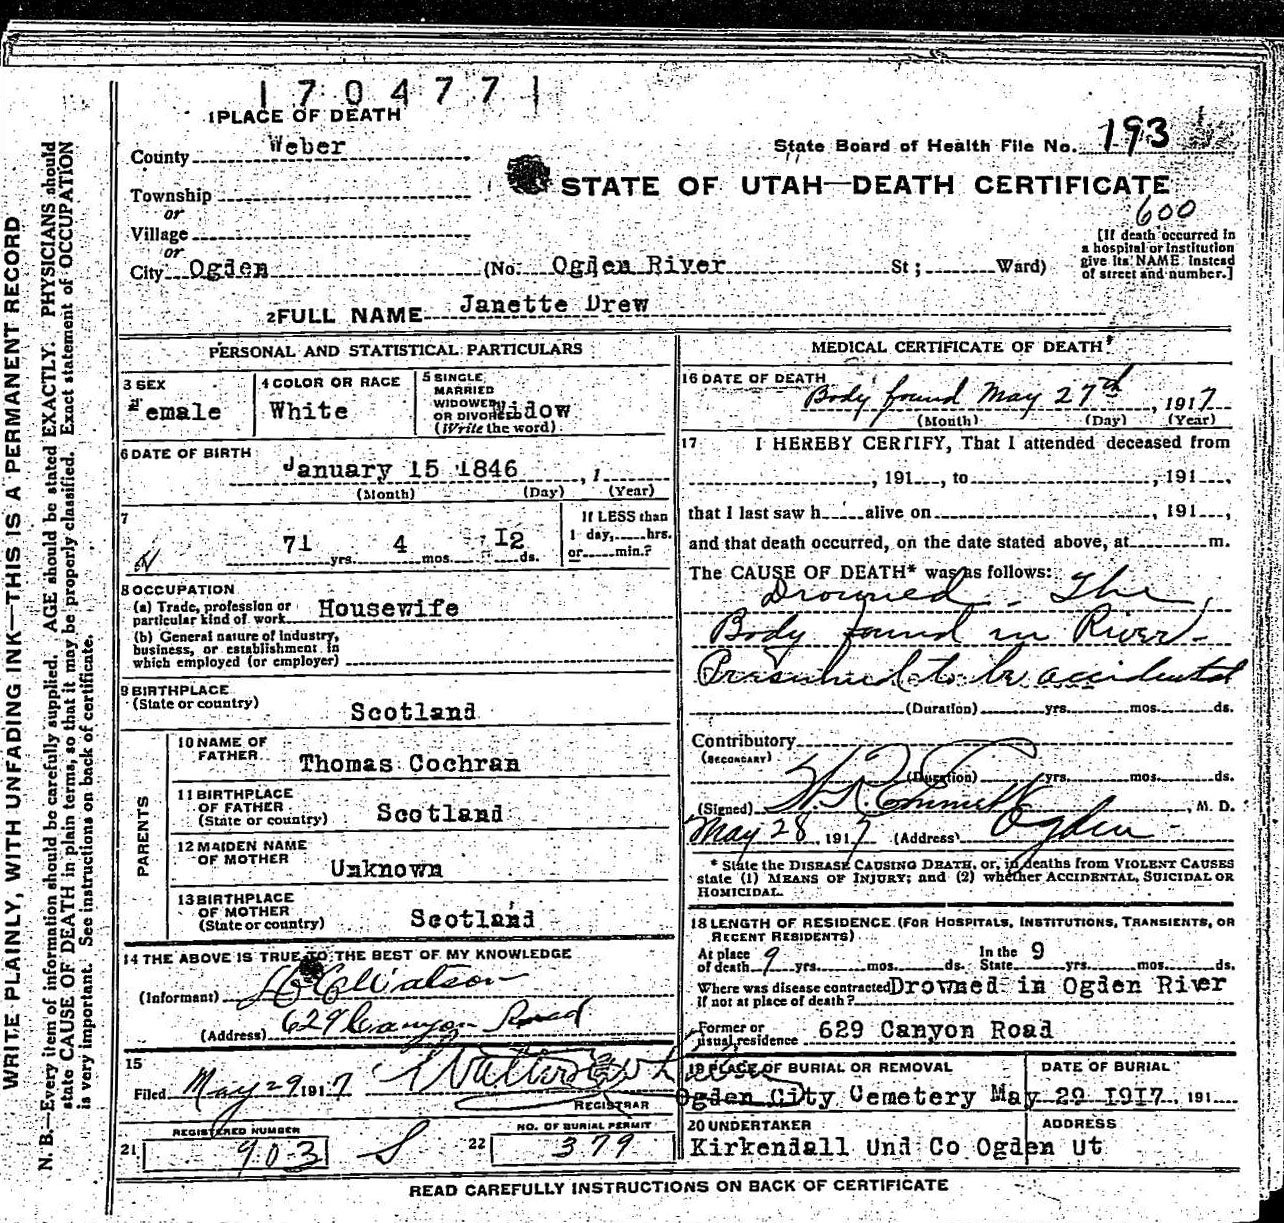 170477
1 PLACE OF DEATH
County Weber
State Board of Health File No. 193
STATE OF UTAH—DEATH CERTIFICATE
600
Township
or
Village
or
City Ogden (No. Ogden River St; Ward)
[If death occurred in
a hospital or institution
give its NAME instead
of street and number.]
2 FULL NAME Janette Drew
PERSONAL AND STATISTICAL PARTICULARS
3 SEX
Female
4 COLOR OR RACE
White
5 SINGLE
MARRIED
WIDOWED
OR DIVORCED
(Write the word)
Widow
6 DATE OF BIRTH
January 15 1846, 1
(Month) (Day) (Year)
7
71 yrs. 4 mos. 12 ds.
If LESS than
1 day, hrs.
or min.?
8 OCCUPATION
(a) Trade, profession or
particular kind of work Housewife
(b) General nature of industry,
business, or establishment in
which employed (or employer)
9 BIRTHPLACE
(State or country)
Scotland
PARENTS
10 NAME OF
FATHER
Thomas Cochran
11 BIRTHPLACE
OF FATHER
(State or country)
Scotland
12 MAIDEN NAME
OF MOTHER
Unknown
13 BIRTHPLACE
OF MOTHER
(State or country)
Scotland
14 THE ABOVE IS TRUE TO THE BEST OF MY KNOWLEDGE
(Informant) Watson
(Address) 629 Canyon Road
15
Filed May 29 1917 Walter
REGISTRAR
REGISTERED NUMBER
21 903 S
NO. OF BURIAL PERMIT
22 379
MEDICAL CERTIFICATE OF DEATH
16 DATE OF DEATH
Body found May 27th, 1917
(Month) (Day) (Year)
17 I HEREBY CERTIFY, That I attended deceased from
, 191 , to , 191 ,
that I last saw h alive on , 191 ,
and that death occurred, on the date stated above, at m.
The CAUSE OF DEATH* was as follows:
Drowned - The
Body found in River -
Presumed to be accidental
(Duration) yrs. mos. ds.
Contributory
(SECONDARY)
(Duration) yrs. mos. ds.
(Signed) Emmett, M. D.
May 28, 1917 (Address) Ogden
* State the DISEASE CAUSING DEATH, or, in deaths from VIOLENT CAUSES
state (1) MEANS OF INJURY; and (2) whether ACCIDENTAL, SUICIDAL OR
HOMICIDAL.
18 LENGTH OF RESIDENCE (FOR HOSPITALS, INSTITUTIONS, TRANSIENTS, OR
RECENT RESIDENTS)
At place
of death 9 yrs. mos. ds.
In the
State 9 yrs. mos. ds.
Where was disease contracted
if not at place of death? Drowned in Ogden River
Former or
usual residence 629 Canyon Road
19 PLACE OF BURIAL OR REMOVAL
Ogden City Cemetery
DATE OF BURIAL
May 29 1917, 191
20 UNDERTAKER
Kirkendall Und Co
ADDRESS
Ogden Ut
READ CAREFULLY INSTRUCTIONS ON BACK OF CERTIFICATE
WRITE PLAINLY, WITH UNFADING INK—THIS IS A PERMANENT RECORD
N. B.—Every item of information should be carefully supplied. AGE should be stated EXACTLY. PHYSICIANS should
state CAUSE OF DEATH in plain terms, so that it may be properly classified. Exact statement of OCCUPATION
is very important. See instructions on back of certificate.